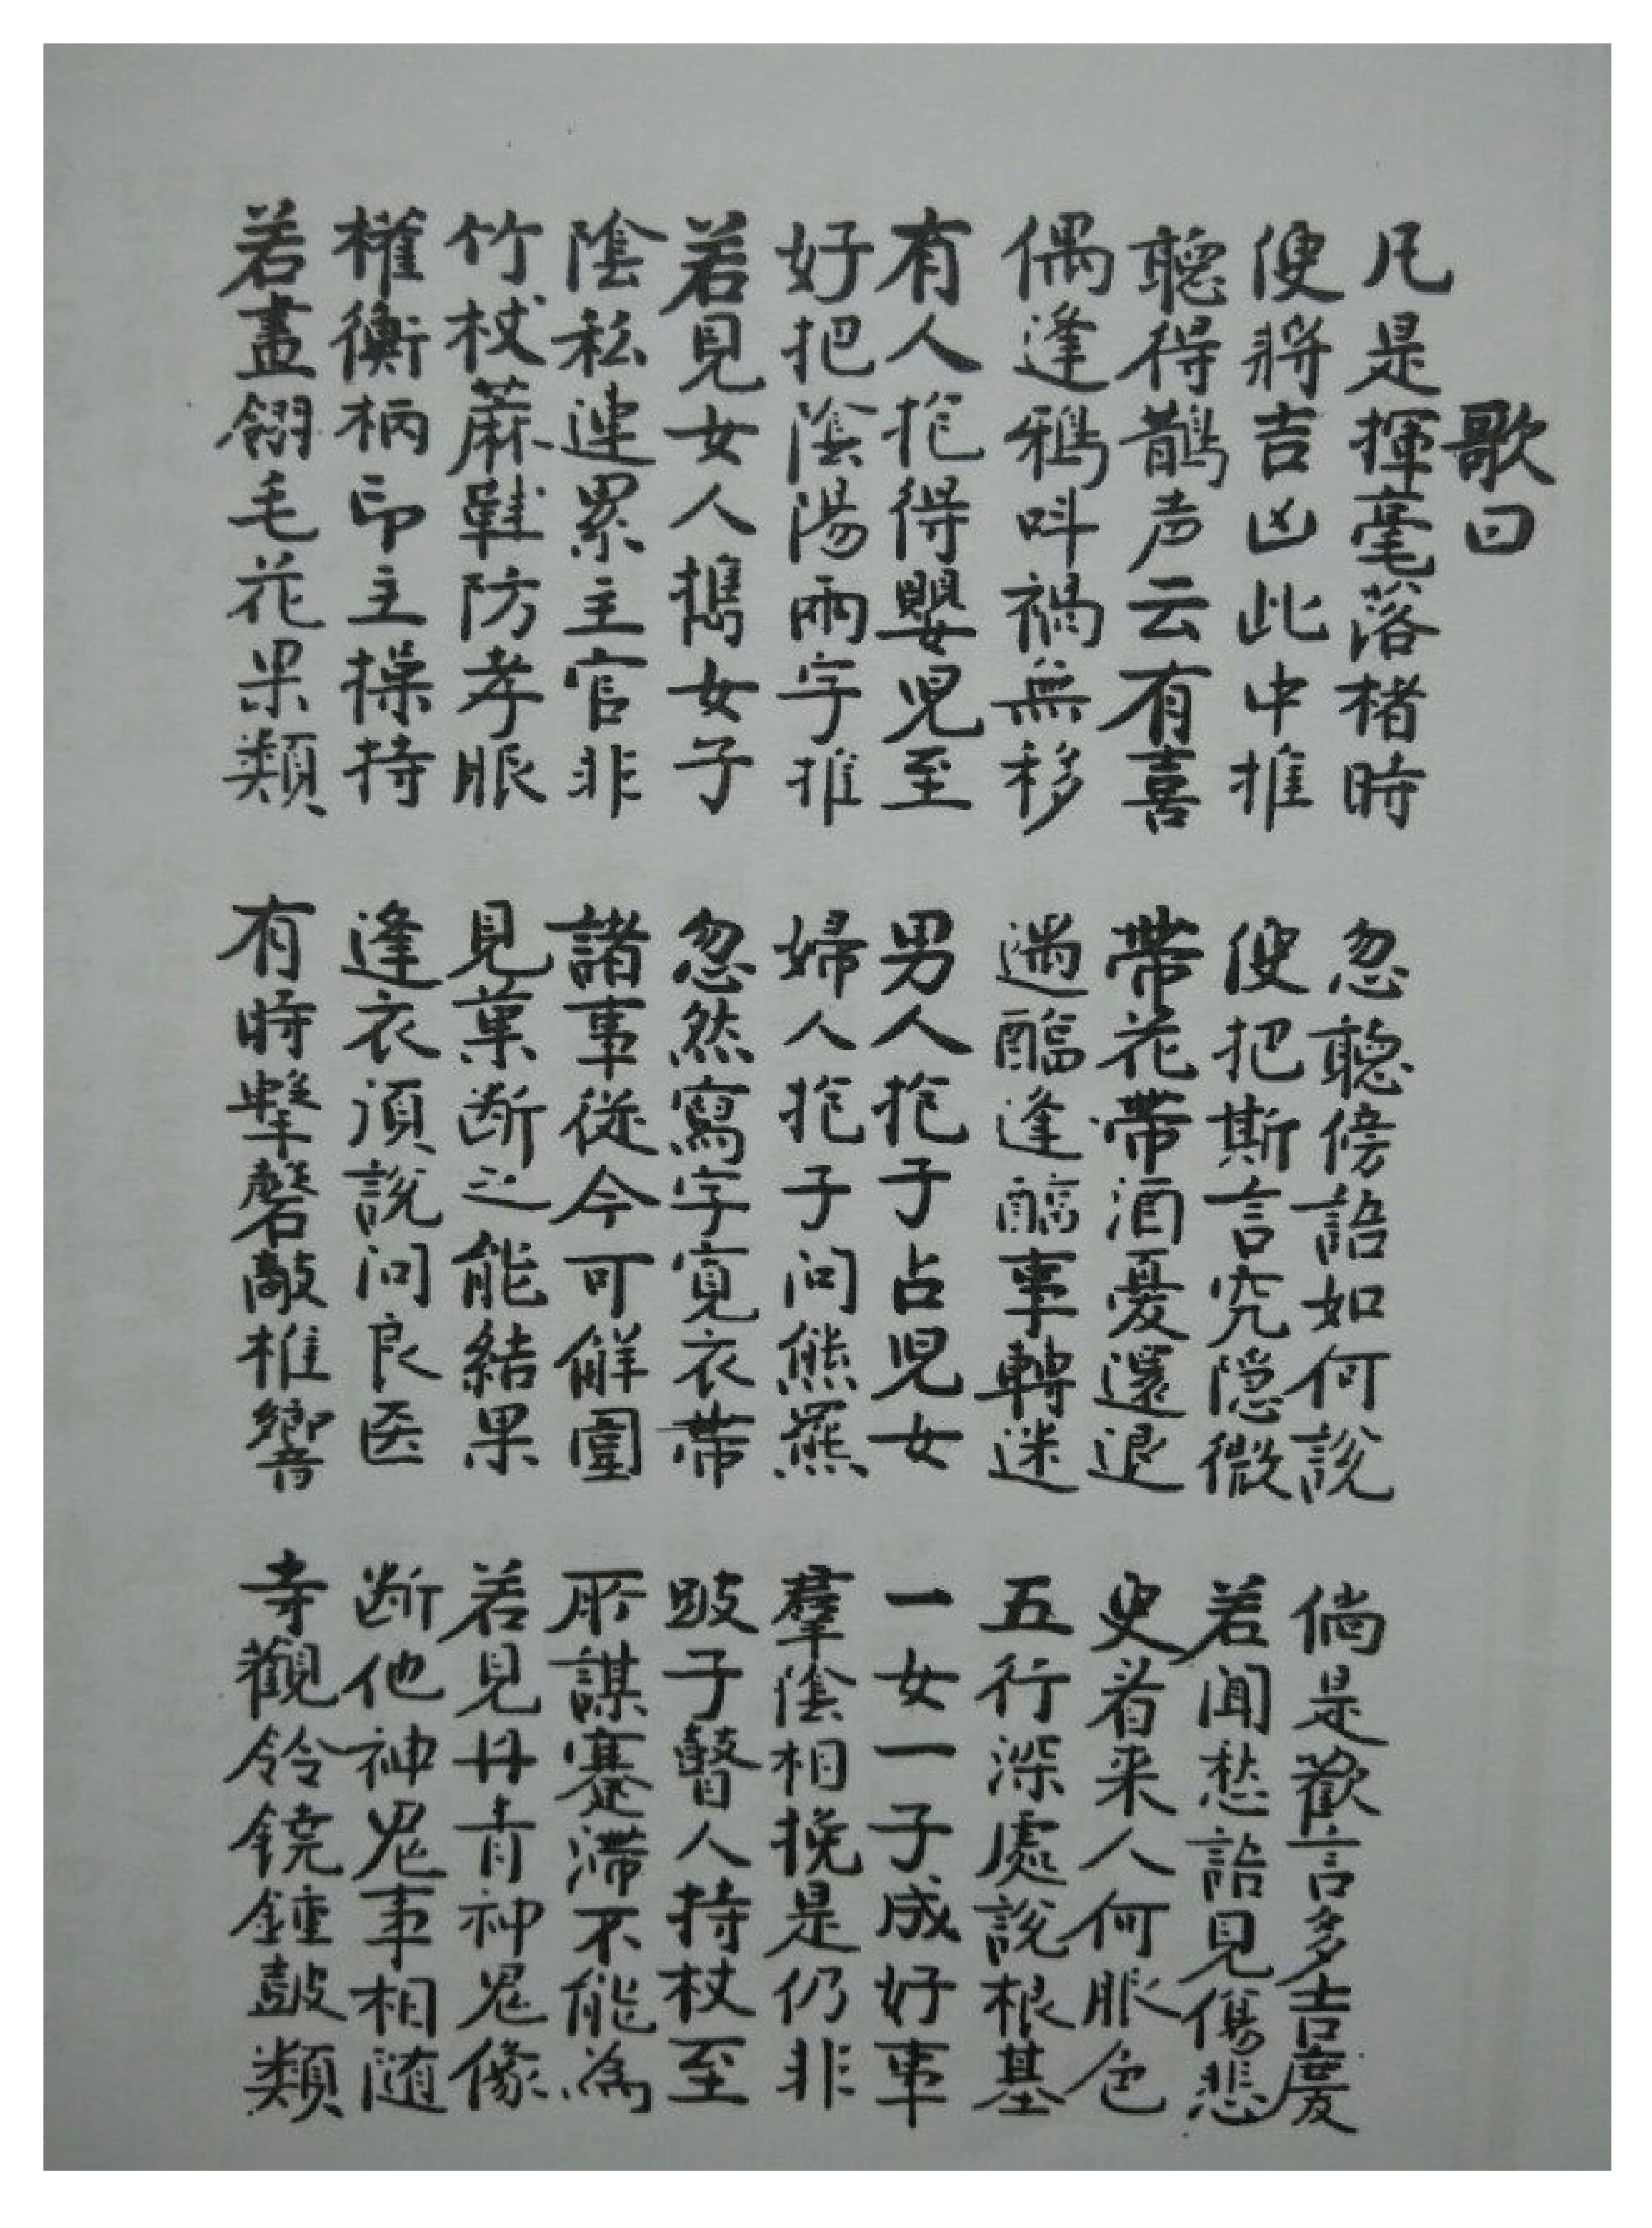 歌曰
凡是揮毫落楮時 忽聽傍語如何說 倘是歡言多吉慶
便將吉凶此中推 便把斯言究隐微 若闻愁語見傷悲
聽得鵲声云有喜 帶花帶酒憂還退 更看来人何服色
偶逢鴉叫禍無移 遇逢事轉迷 五行深處說根基
有人抱得嬰児至 男人抱子占児女 一女一子成好事
好把陰陽兩字推 婦人抱子问熊羆 羣陰相挽是仍非
若見女人攜女子 忽然寫字寬衣帶 跛子瞽人持杖至
陰私連累主官非 諸事從今可解圍 所謀蹇滯不能為
竹杖蔴鞋防孝服 見菓断之能結果 若見丹青神鬼像
權衡柄印主操持 逢衣須說问良医 断他神鬼事相随
若畫翎毛花果類 有時擊磬敲椎響 寺觀鈴鐃鍾鼓類